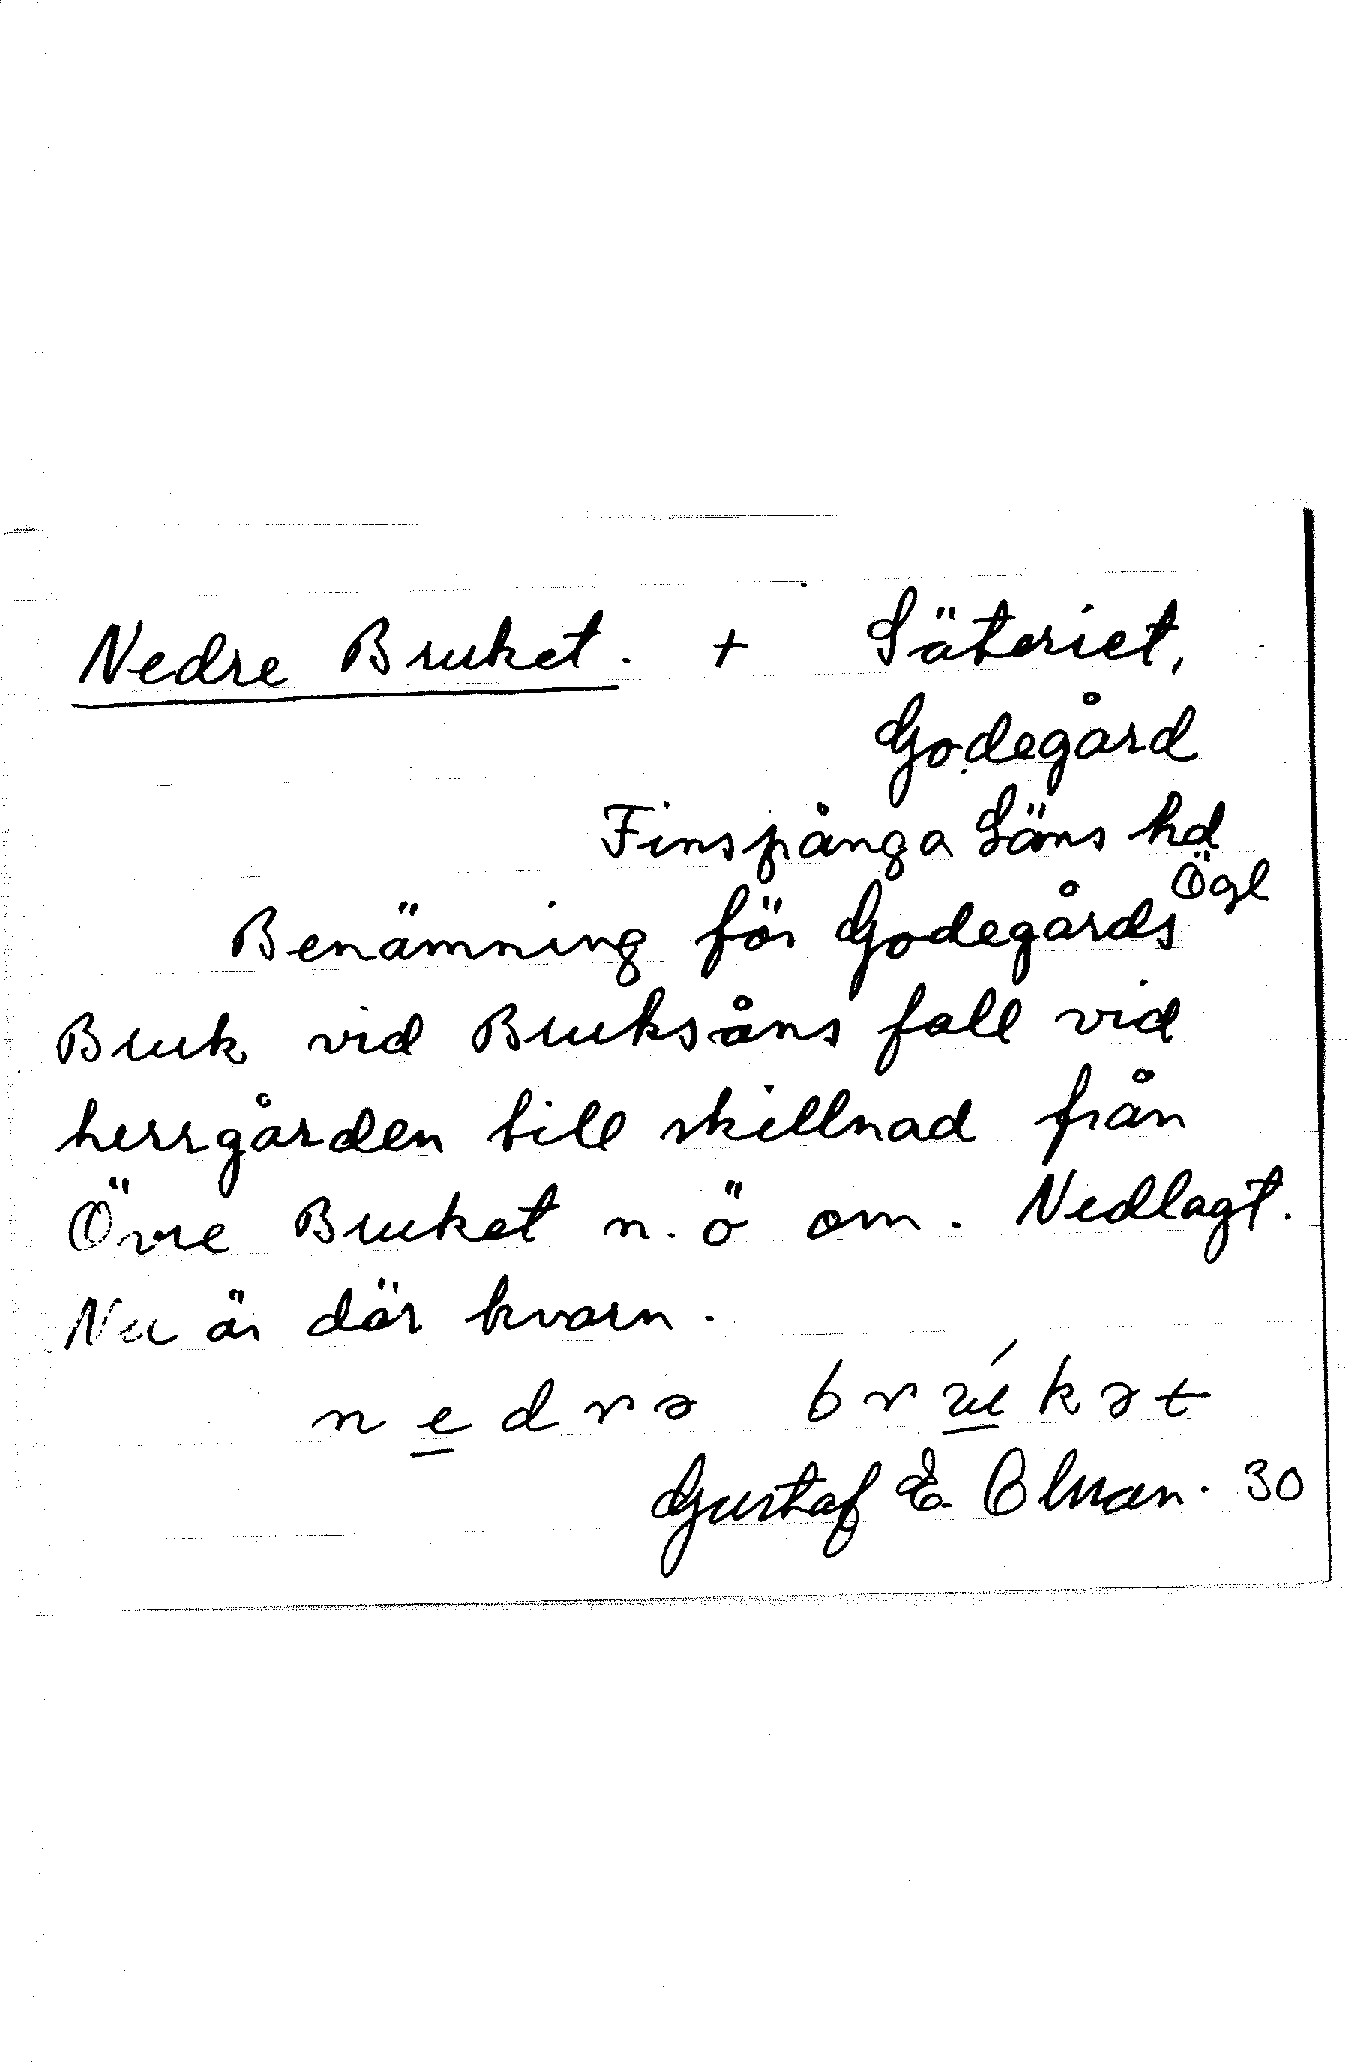 Nedre Bruket. + Säteriet,
Godegård
Finspånga Läns hd
Ögl
Benämning för Godegårds
Bruk vid Bruksåns fall vid
herrgården till skillnad från
Övre Bruket n.ö om. Nedlagt.
Nu är där kvarn.
nedrə brúkət
Gustaf E. 30